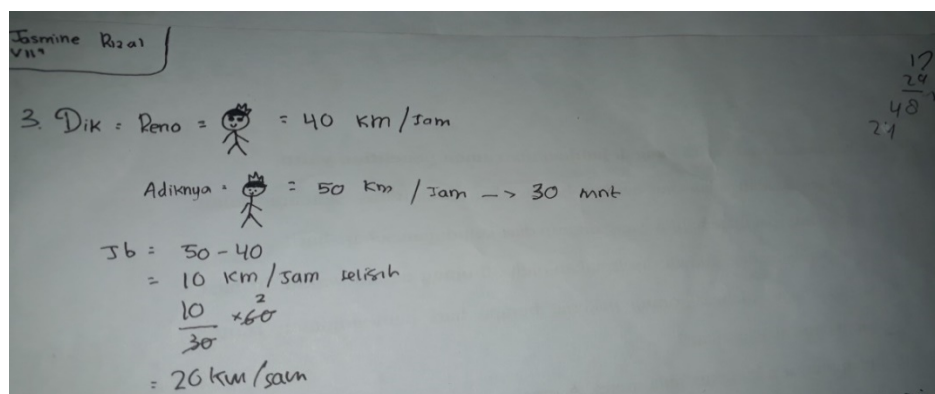 Jasmine Rizal
VII
17
24
48
24
3. Dik = Reno = = 40 km/Jam
Adiknya = = 50 Km / Jam -> 30 mnt
Jb = 50 - 40
= 10 km/Jam selisih
10/30 × 60 2
= 20 km/jam